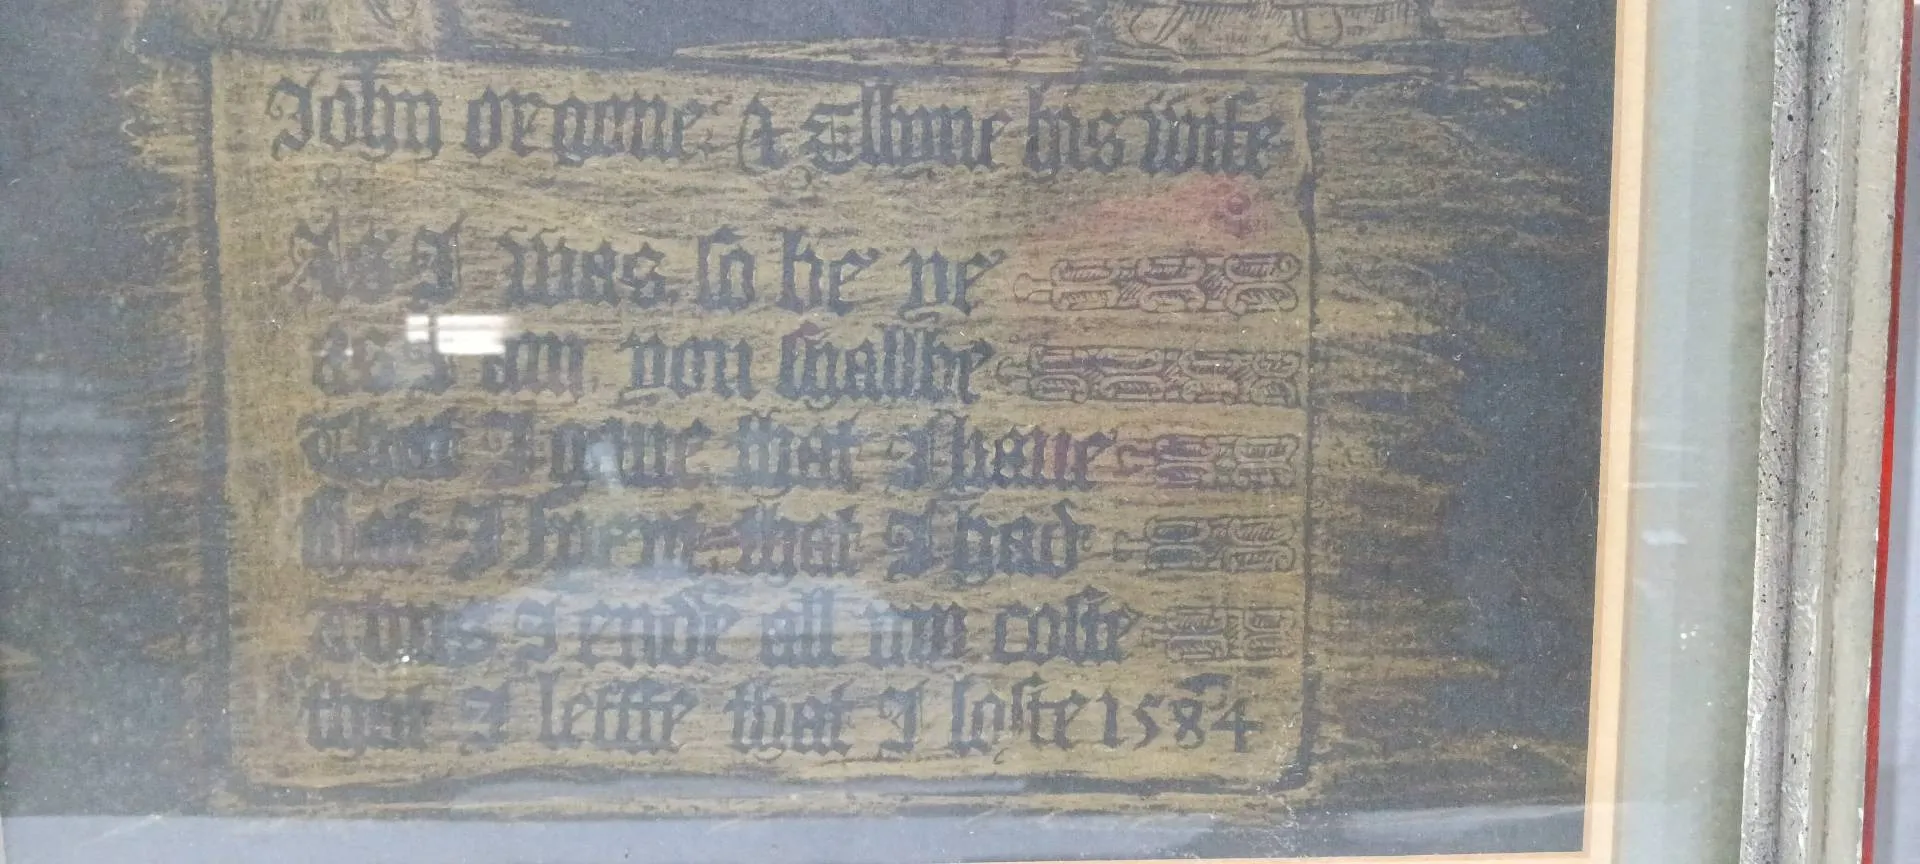 John orgone & Ellyne his wife
As I was so be ye
as I am you shall be
That I gaue that I haue
that I spent that I had
Thus I ende all my coste
that I leffte that I loste 1584